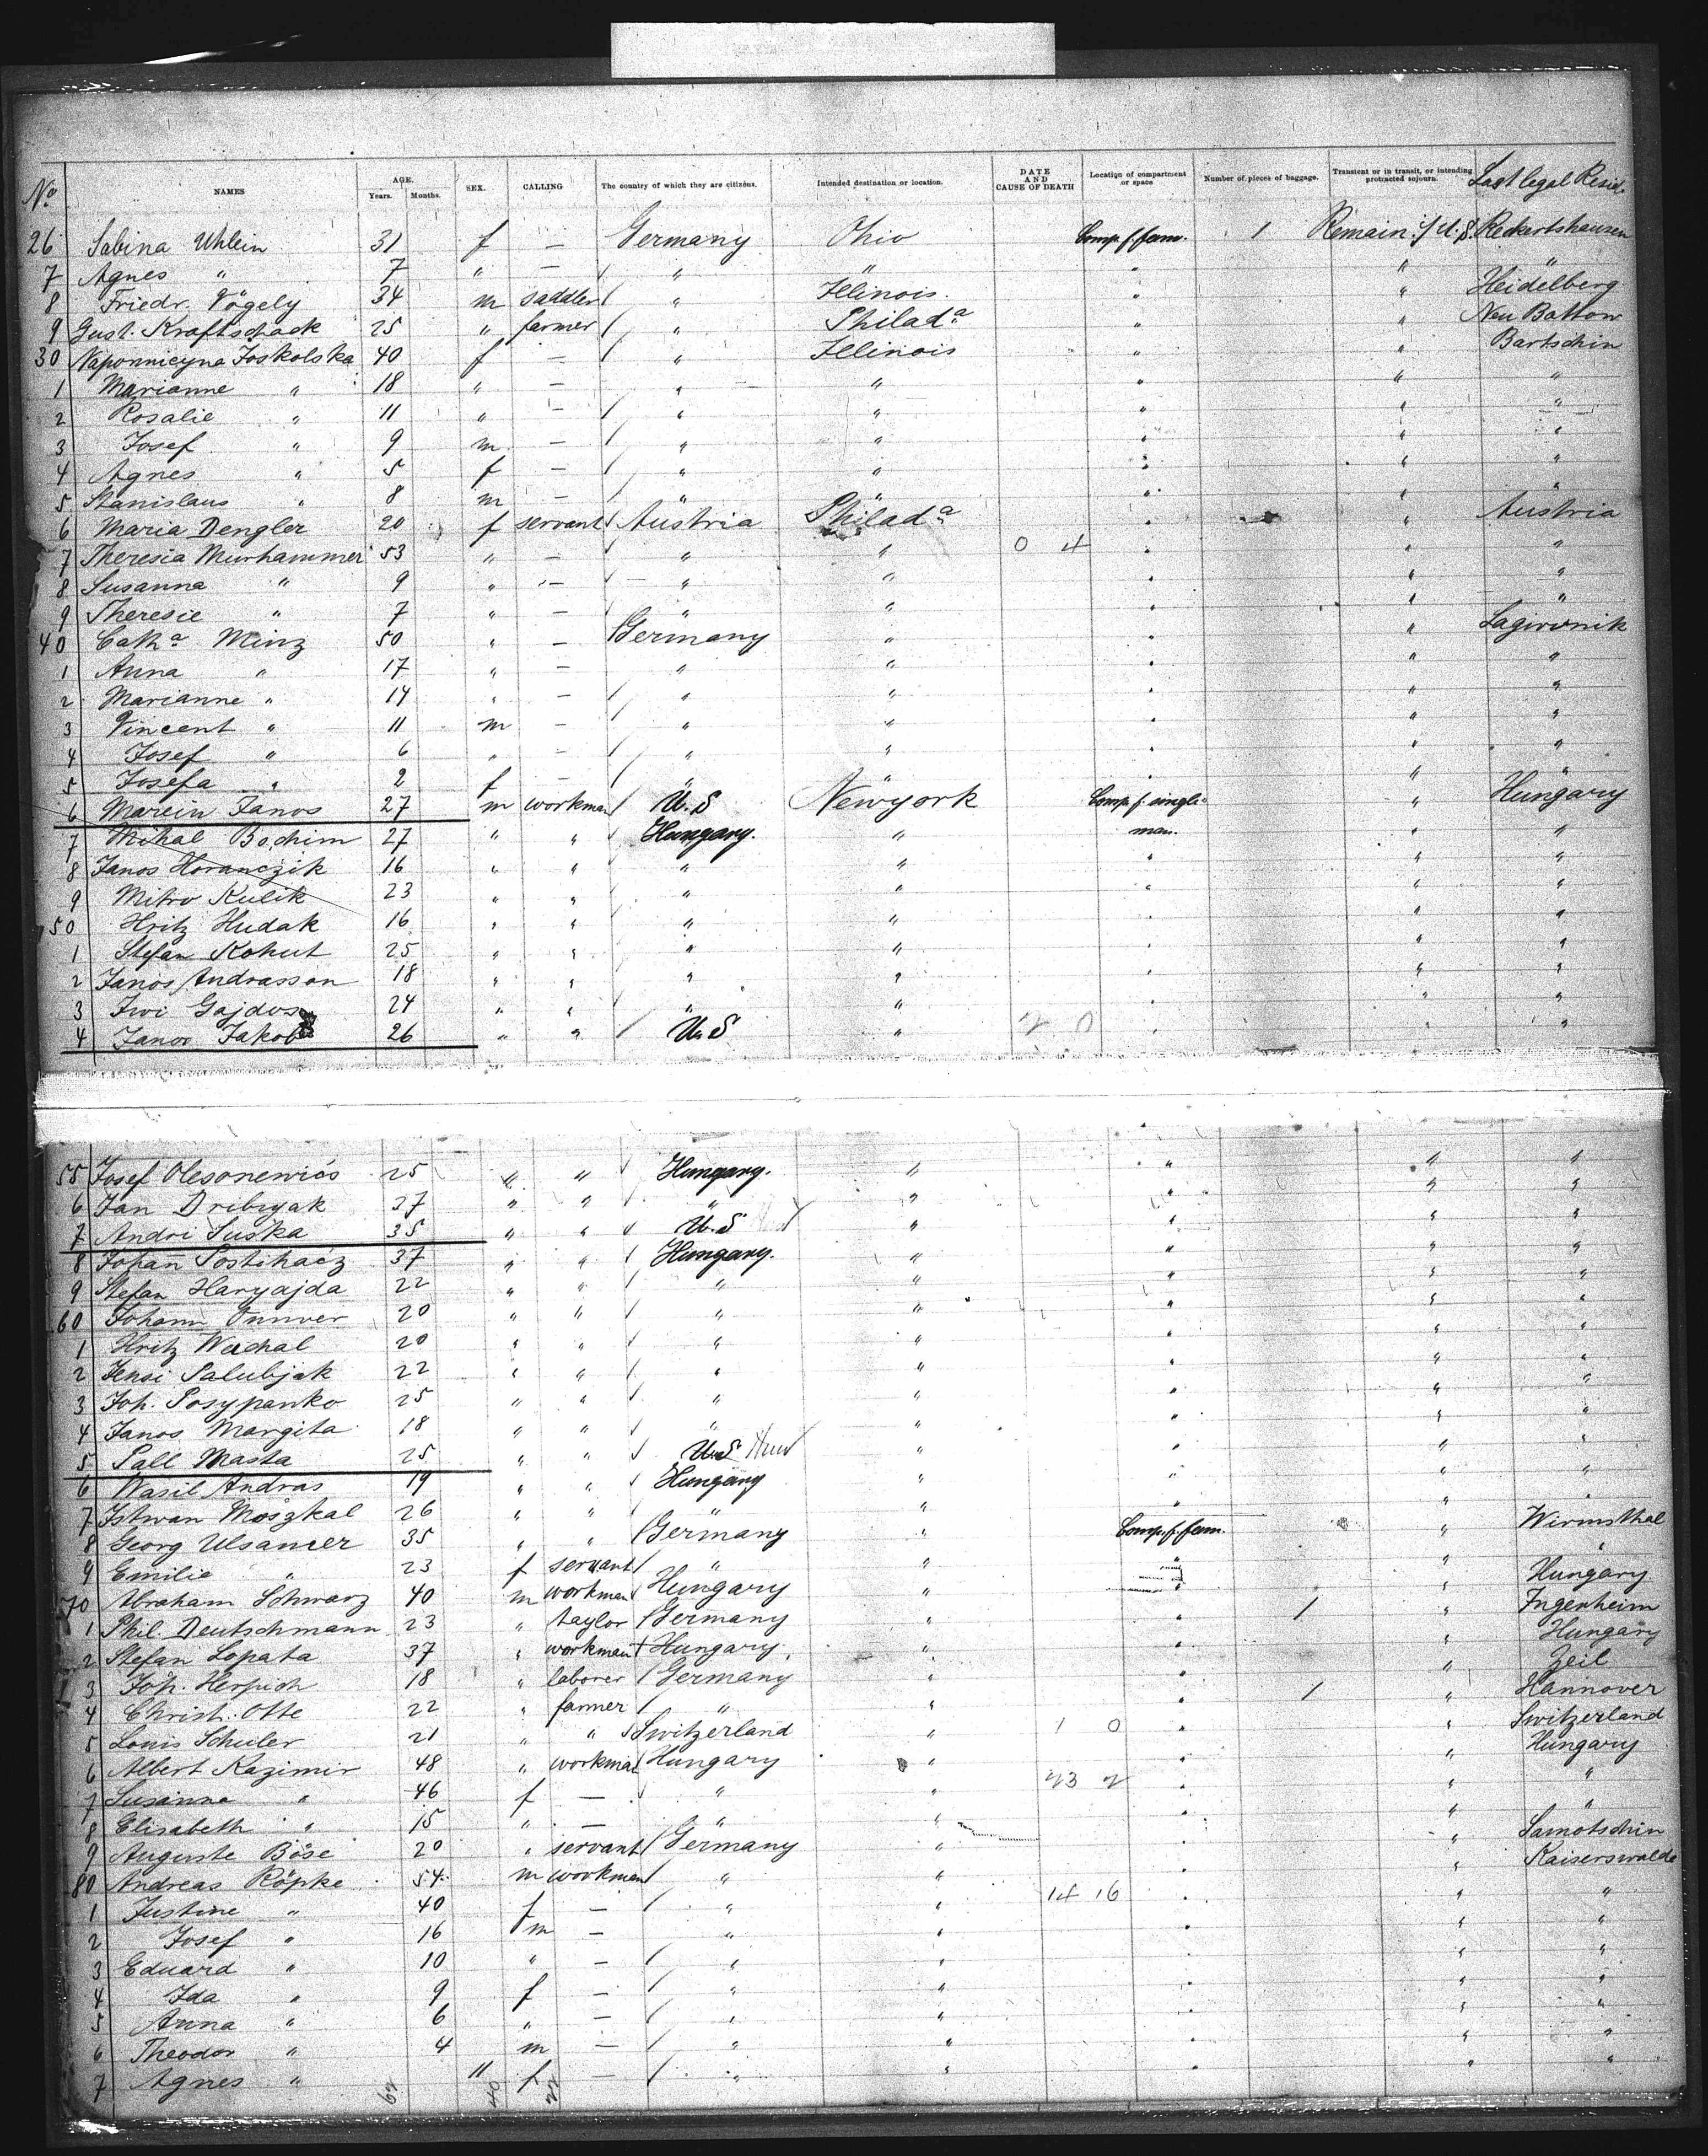 No. NAMES AGE. Years. Months. SEX. CALLING The country of which they are citizens. Intended destination or location. DATE AND CAUSE OF DEATH Location of compartment or space Number of pieces of baggage. Transient or in transit, or intending protracted sojourn. Last legal Resid.
26 Sabina Uhlein 31 f — Germany Ohio Comp. f. fam. 1 Remain i/ U.S. Reckertshausen
7 Agnes " 7 " — " " " " "
8 Friedr. Vögely 34 m saddler " Illinois " " Heidelberg
9 Gust. Kraftschack 25 " farmer " Philad.a " " Neu Battow
30 Napomucyna Joskolska 40 f — " Illinois " " Bartschin
1 Marianne " 18 " — " " " " "
2 Rosalie " 11 " — " " " " "
3 Josef " 9 m — " " " " "
4 Agnes " 5 f — " " " " "
5 Stanislaus " 8 m — " " " " "
6 Maria Dengler 20 f servant Austria Philad.a " " Austria
7 Theresia Murhammer 53 " — " " 0 4 " " "
8 Susanna " 9 " — " " " " "
9 Theresie " 7 " — " " " " "
40 Cath.a Minz 50 " — Germany " " " Lagiewnik
1 Anna " 17 " — " " " " "
2 Marianne " 14 " — " " " " "
3 Vincent " 11 m — " " " " "
4 Josef " 6 " — " " " " "
5 Josefa " 2 f — " " " " "
6 Marcin Janos 27 m workman U.S Newyork Comp. f. single " Hungary
7 Mihal Bochim 27 " " Hungary. " man. " "
8 Janos Horanczik 16 " " " " " " "
9 Mitro Kulik 23 " " " " " " "
50 Hritz Hudak 16 " " " " " " "
1 Stefan Kohut 25 " " " " " " "
2 Janos Andrasson 18 " " " " " " "
3 Iwi Gajdos 24 " " " " " " "
4 Janos Jakob 26 " " U.S " 2 0 " " "
55 Josef Olesonewics 25 " " Hungary. " " " "
6 Jan Dribnyak 27 " " " " " " "
7 Andri Suska 35 " " U.S " " " "
8 Johan Postihacz 37 " " Hungary. " " " "
9 Stefan Haryajda 22 " " " " " " "
60 Johann Onuver 20 " " " " " " "
1 Hritz Wachal 20 " " " " " " "
2 Jensi Salubjak 22 " " " " " " "
3 Joh. Posypanko 25 " " " " " " "
4 Janos Margita 18 " " " " " " "
5 Pall Masta 25 " " U.S " " " "
6 Wasil Andras 19 " " Hungary " " " "
7 Istwan Moszkal 26 " " " " " " "
8 Georg Ulsamer 35 " " Germany " Comp. f. fam. " Wirmsthal
9 Emilie " 23 f servant " " " " "
70 Abraham Schwarz 40 m workman Hungary " " " Hungary
1 Phil. Deutschmann 23 " taylor Germany " " 1 " Ingenheim
2 Stefan Lopata 37 " workman Hungary " " " Hungary
3 Joh. Herpich 18 " laborer Germany " " " Zeil
4 Christ. Otte 22 " farmer " " " 1 " Hannover
5 Louis Schuler 21 " " Switzerland " 1 0 " " Switzerland
6 Albert Kazimir 48 " workman Hungary " " " Hungary
7 Susanna " 46 f — " " 23 2 " " "
8 Elisabeth " 15 " — " " " " "
9 Auguste Böse 20 " servant Germany " " " Samotschin
80 Andreas Röpke 54 m workman " " " " Kaiserswalde
1 Justine " 40 f — " " 14 16 " " "
2 Josef " 16 m — " " " " "
3 Eduard " 10 " — " " " " "
4 Ida " 9 f — " " " " "
5 Anna " 6 " — " " " " "
6 Theodor " 4 m — " " " " "
7 Agnes " 11 f — " " " " "
62 40 22